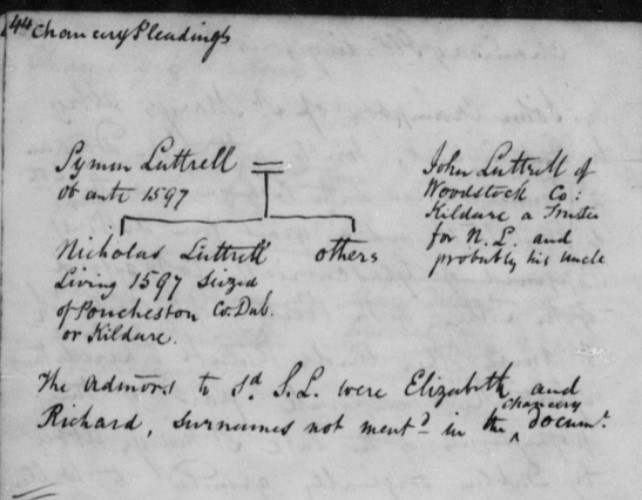 44 Chancery Pleadings
Symon Luttrell =
ob ante 1597
John Luttrell of
Woodstock Co:
Kildare a Trustee
for N. L. and
probably his uncle
Nicholas Luttrell
Living 1597 seized
of Poncheston Co. Dub.
or Kildare.
others
The admors to sd. S. L. were Elizabeth and
Richard, surnames not mentd in the chancery documt.